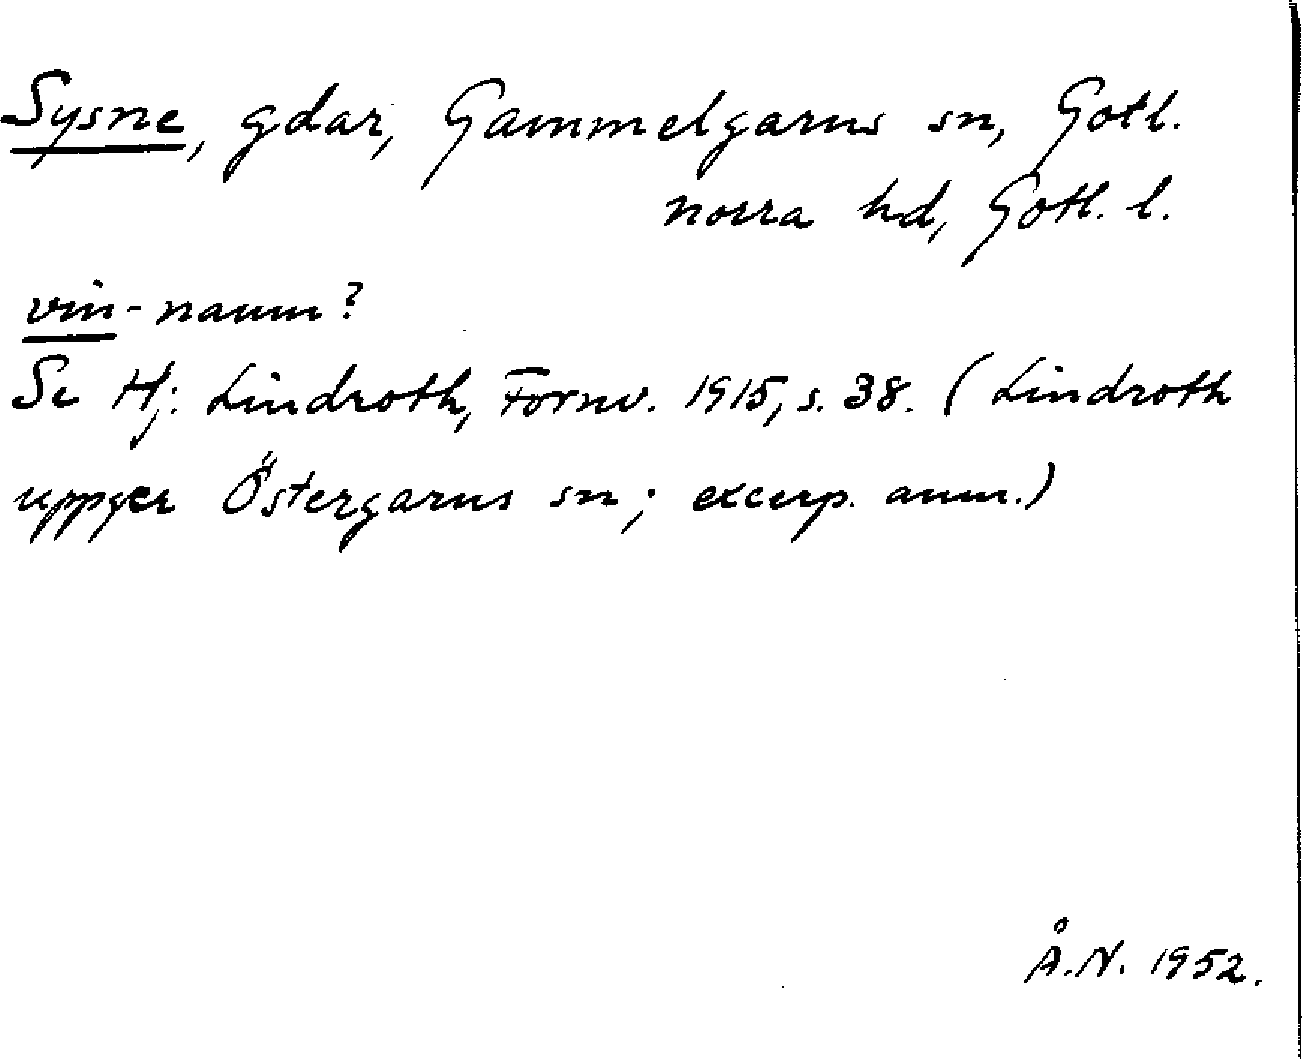 Sysne, gdar, Gammelgarns sn, Gotl.
norra hd, Gotl. l.
vin-namn?
Se Hj. Lindroth, Fornv. 1915, s. 38. (Lindroth
uppger Östergarns sn; excerp. anm.)
Å.N. 1952.